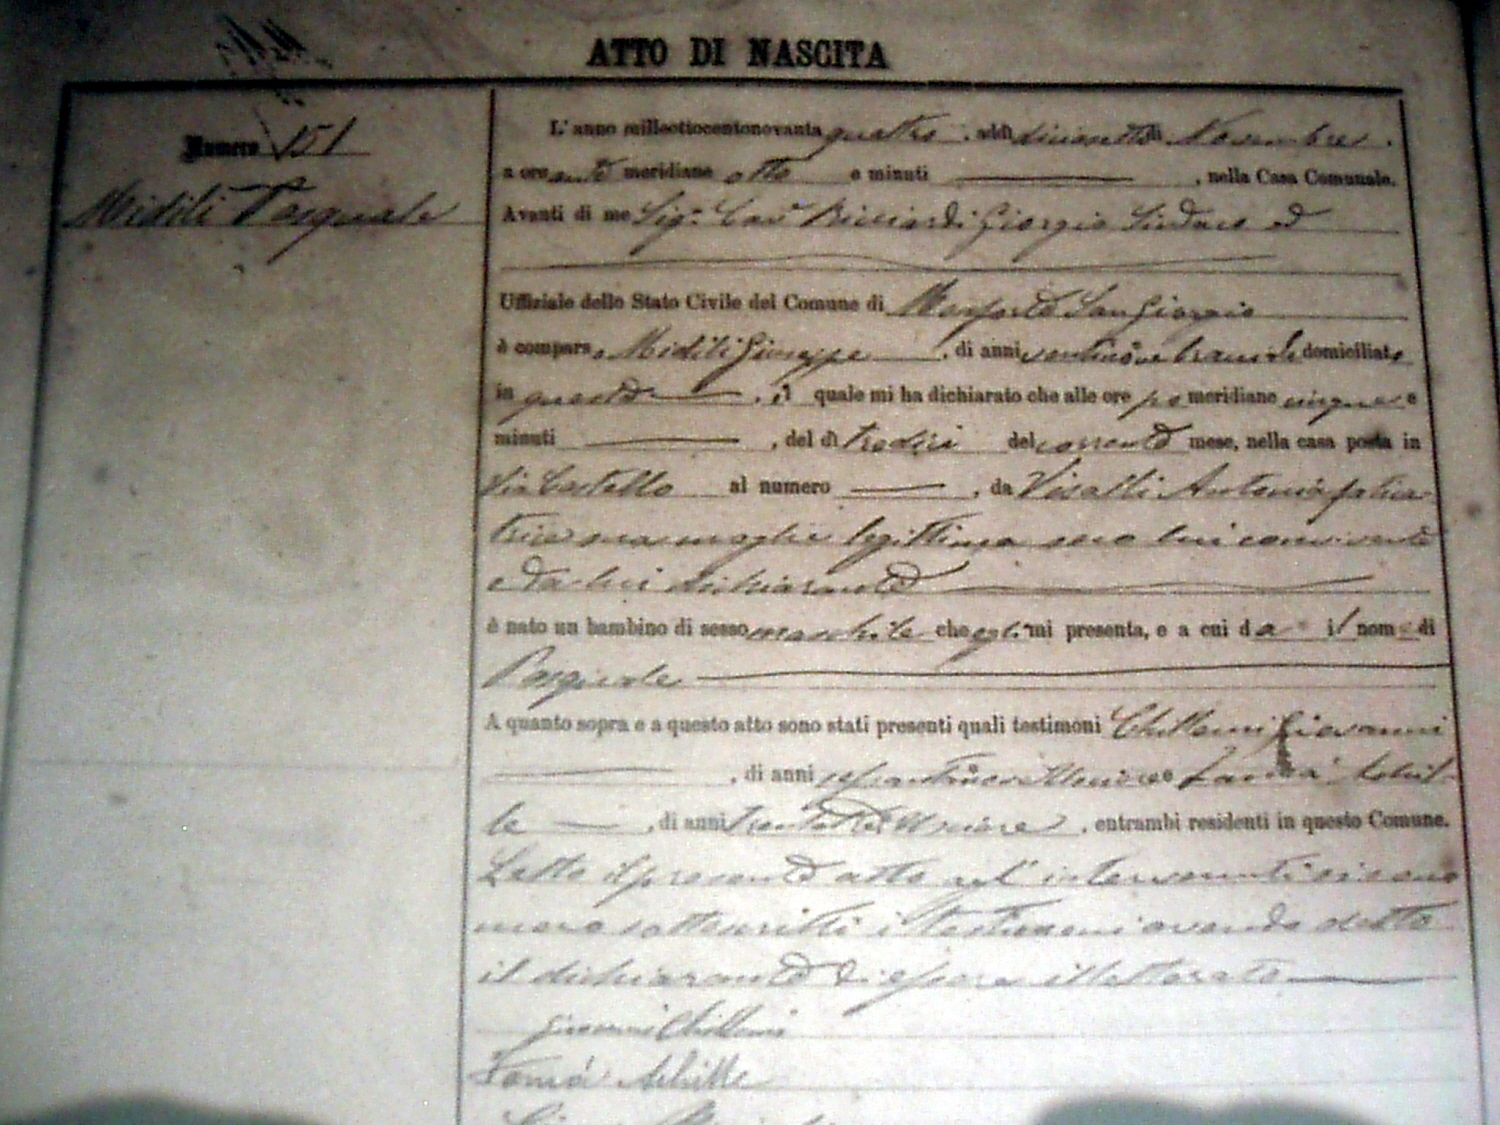 ATTO DI NASCITA
Numero 151
Midili Pasquale
L' anno milleottocentonovanta quattro, addì diciassette di Novembre,
a ore ante meridiane otto e minuti , nella Casa Comunale.
Avanti di me Sig. Cav. Ricciardi Giorgio Sindaco ed
Uffiziale dello Stato Civile del Comune di Monforte San Giorgio
è comparso Midili Giuseppe, di anni ventinove domiciliato
in questo, il quale mi ha dichiarato che alle ore po meridiane cinque e
minuti , del dì tredici del corrente mese, nella casa posta in
Via Castello al numero , da Visalli Antonia fila
trice sua moglie legittima seco lui convivente
e da lui dichiarante
è nato un bambino di sesso maschile che egli mi presenta, e a cui da il nome di
Pasquale
A quanto sopra e a questo atto sono stati presenti quali testimoni Chillemi Giovanni
, di anni e Achil
le , di anni trentatre, entrambi residenti in questo Comune.
Letto il presente atto agl' intervenuti si sono
meco sottoscritti i testimoni avendo detto
il dichiarante di essere illetterato
Giovanni Chillemi
Achille